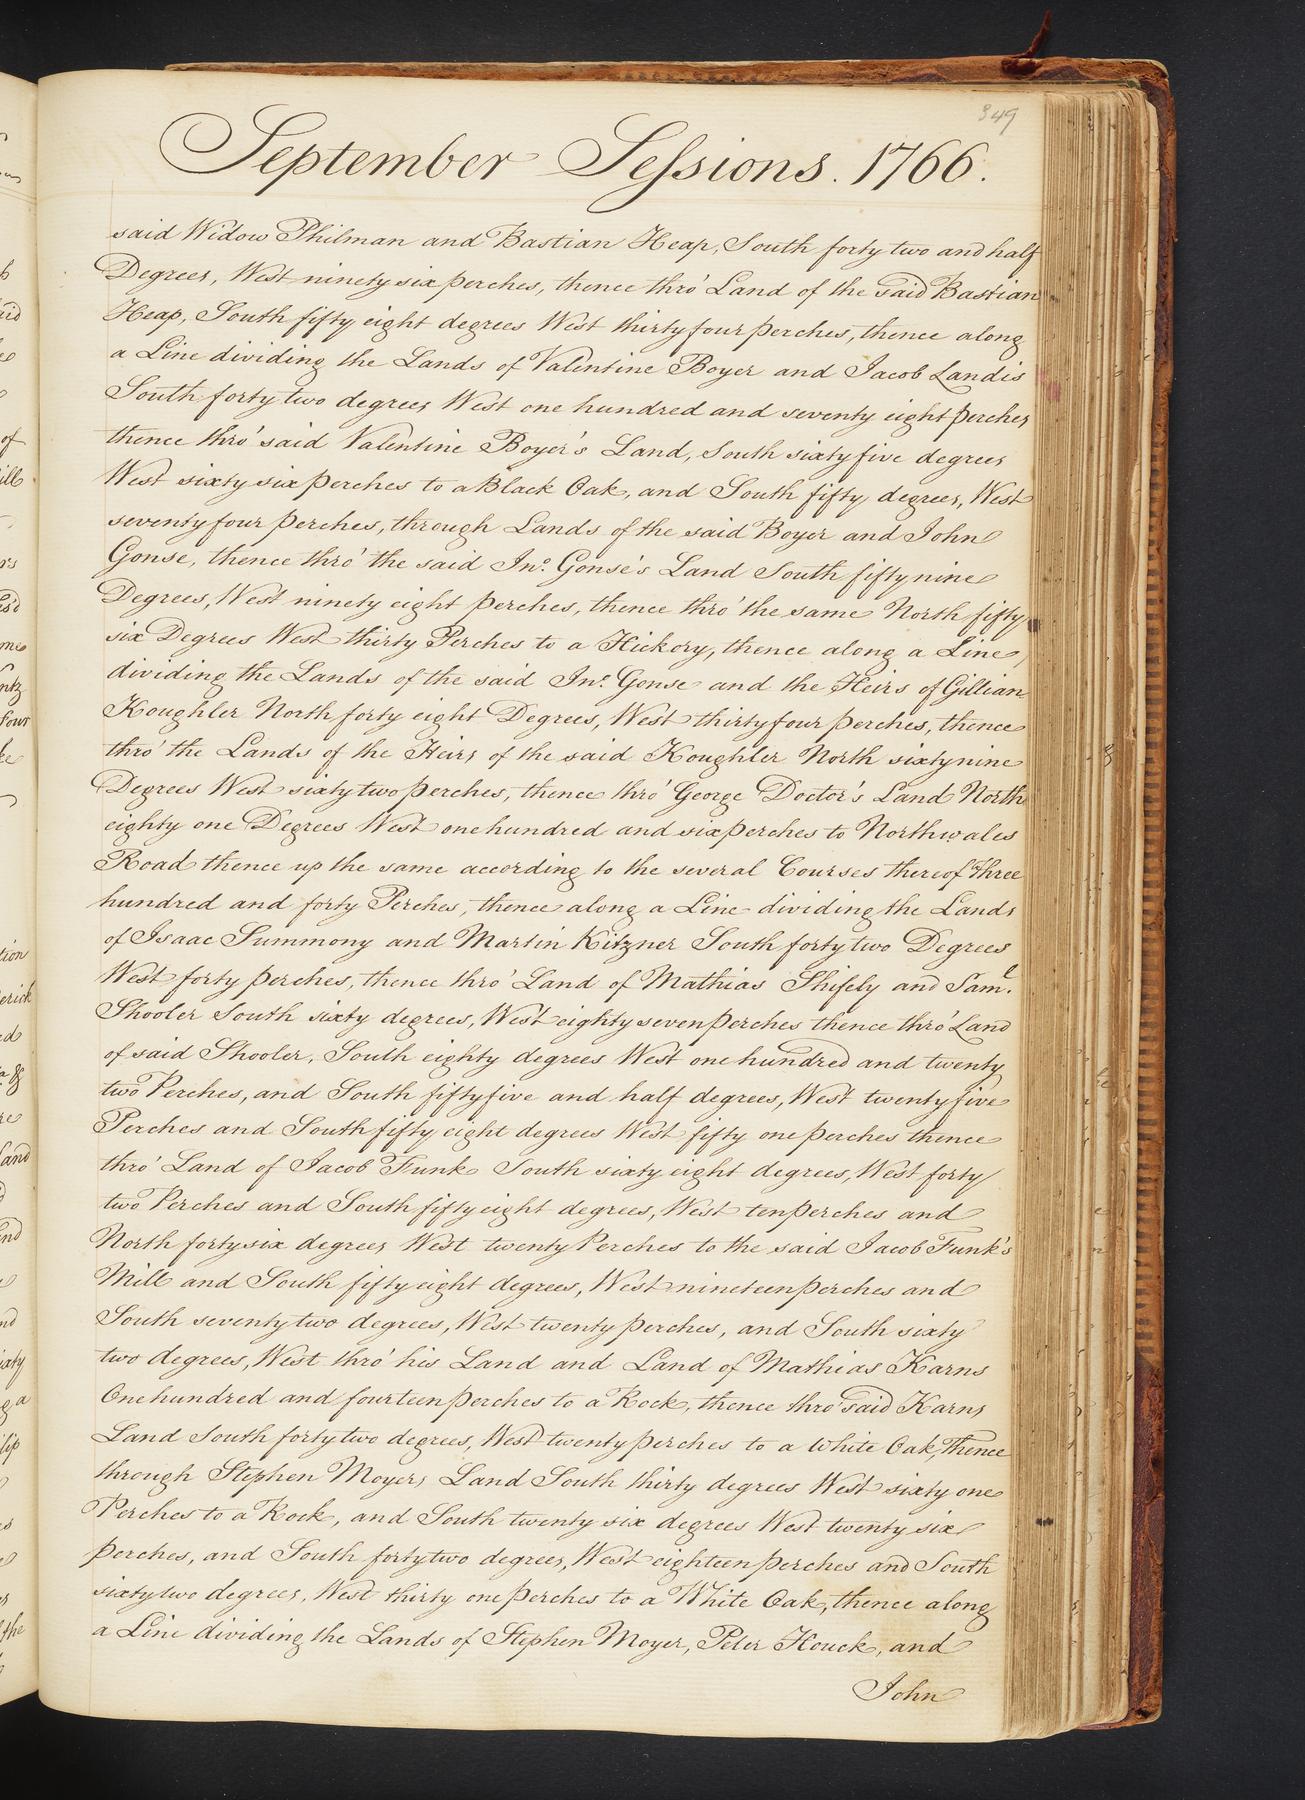 349
September Sessions. 1766.
said Widow Philman and Bastian Heap, South forty two and half
Degrees, West ninety six perches, thence thro' Land of the said Bastian
Heap, South fifty eight degrees West thirty four perches, thence along
a Line dividing the Lands of Valentine Boyer and Jacob Landis
South forty two degrees West one hundred and seventy eight perches
thence thro' said Valentine Boyer's Land, South sixty five degrees
West sixty six perches to a Black Oak, and South fifty degrees, West
seventy four perches, through Lands of the said Boyer and John
Gonse, thence thro' the said Jno. Gonse's Land South fifty nine
Degrees, West ninety eight perches, thence thro' the same North fifty
six Degrees West thirty Perches to a Hickory, thence along a Line
dividing the Lands of the said Jno. Gonse and the Heirs of Gillian
Koughler North forty eight Degrees, West thirty four perches, thence
thro' the Lands of the Heirs of the said Koughler North sixty nine
Degrees West sixty two perches, thence thro' George Doctor's Land North
eighty one Degrees West one hundred and six perches to Northwales
Road thence up the same according to the several Courses thereof three
hundred and forty Perches, thence along a Line dividing the Lands
of Isaac Summony and Martin Kitzner South forty two Degrees
West forty perches, thence thro' Land of Mathias Shifely and Saml.
Shooler South sixty degrees, West eighty seven perches thence thro' Land
of said Shooler, South eighty degrees West one hundred and twenty
two Perches, and South fifty five and half degrees, West twenty five
Perches and South fifty eight degrees West fifty one perches thence
thro' Land of Jacob Funk South sixty eight degrees, West forty
two Perches and South fifty eight degrees, West ten perches and
North forty six degrees West twenty Perches to the said Jacob Funk's
Mill and South fifty eight degrees, West nineteen perches and
South seventy two degrees, West twenty perches, and South sixty
two degrees, West thro' his Land and Land of Mathias Karns
One hundred and fourteen perches to a Rock, thence thro' said Karns
Land South forty two degrees, West twenty perches to a white Oak, Thence
through Stephen Moyers Land South thirty degrees West sixty one
Perches to a Rock, and South twenty six degrees West twenty six
perches, and South forty two degrees, West eighteen perches and South
sixty two degrees, West thirty one perches to a White Oak, thence along
a Line dividing the Lands of Stephen Moyer, Peter Houck, and
John